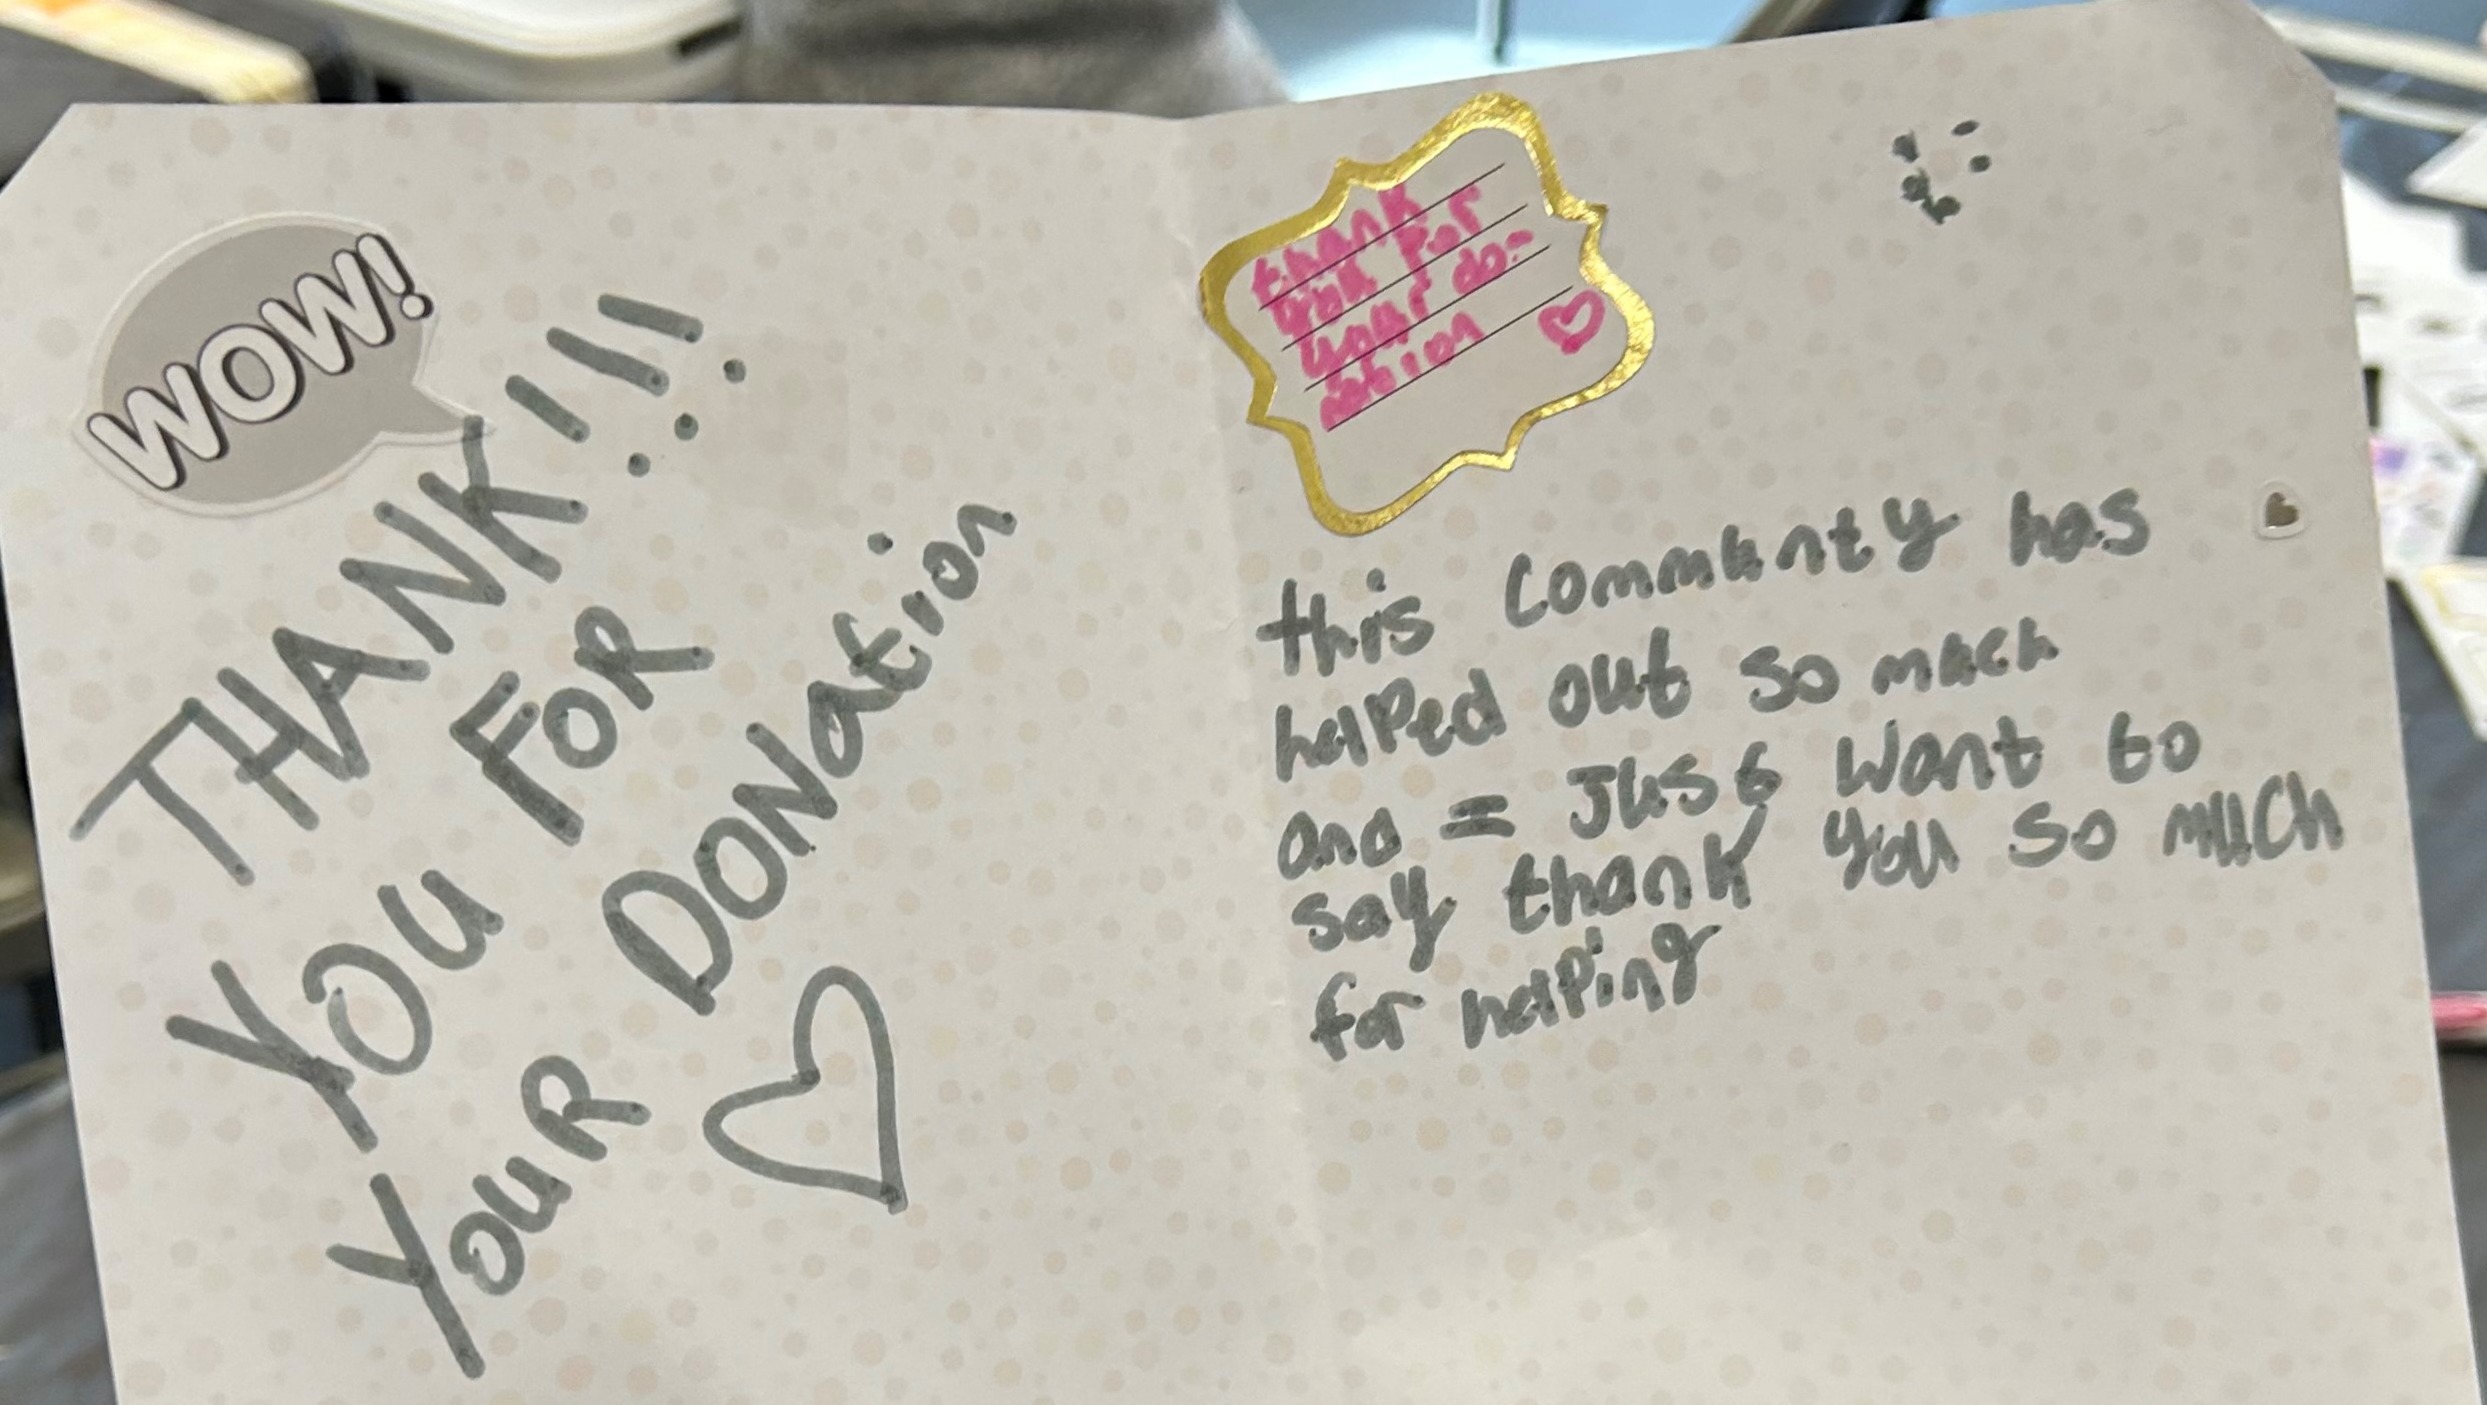 WOW!
THANK!!!
YOU FOR
YOUR DONAtion
thank
you for
your do-
nation
this communty has
helped out so much
and = Just want to
say thank you so much
for helping